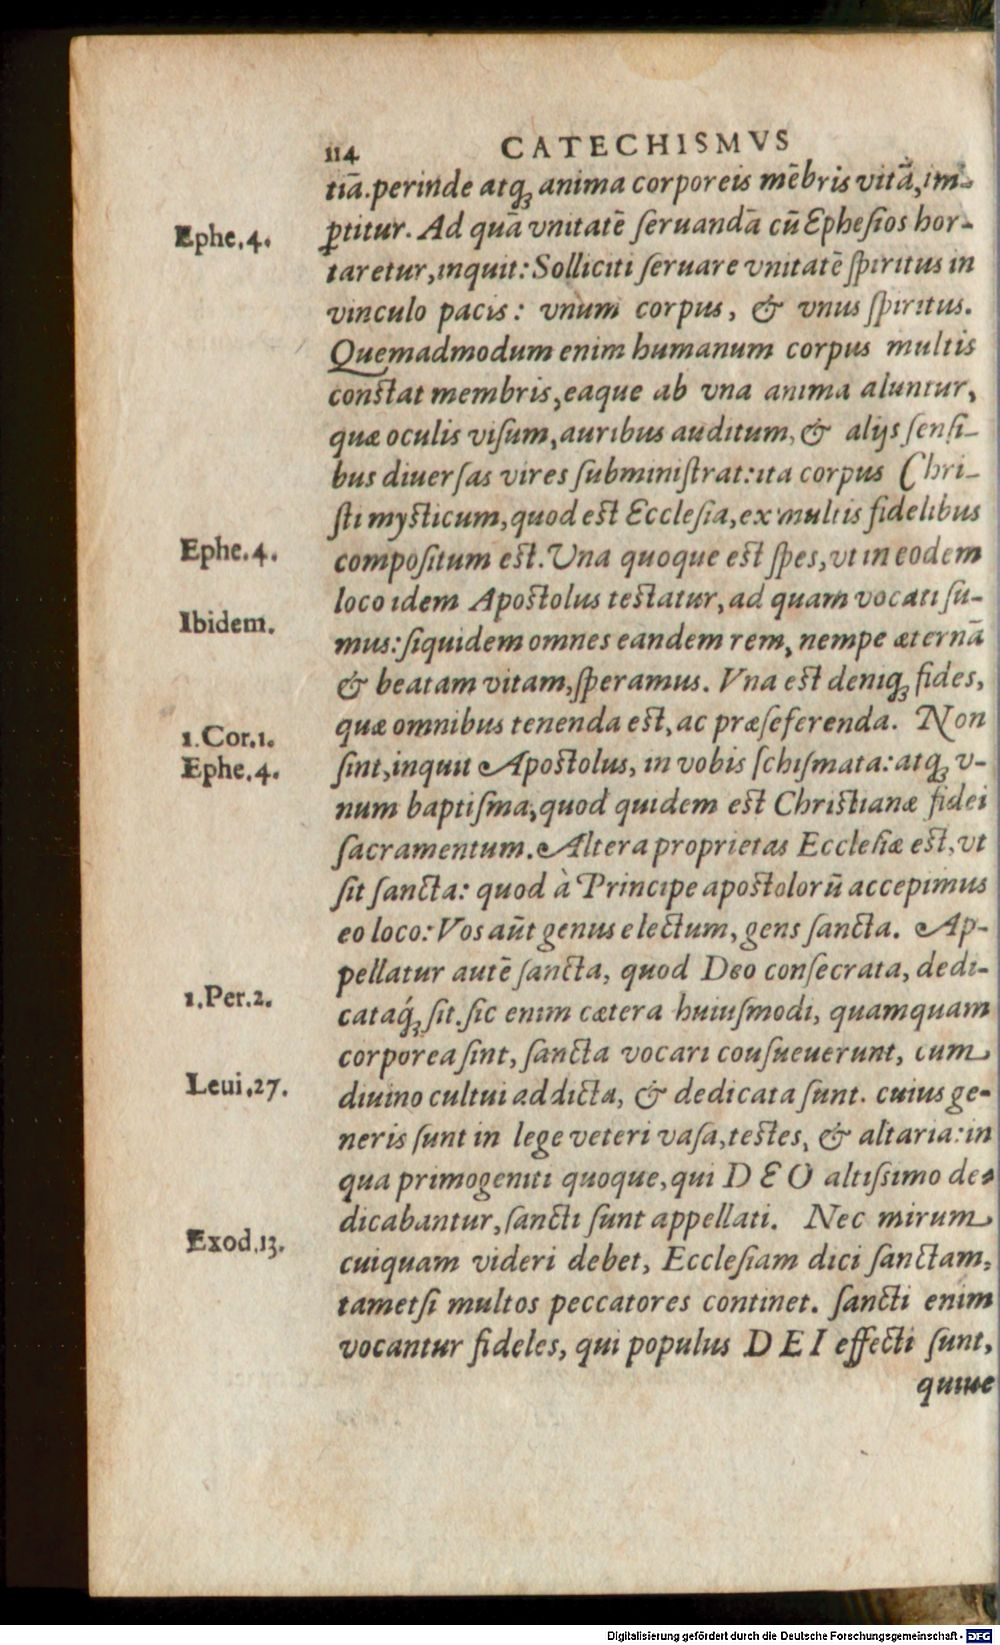 114 CATECHISMVS
tiā.perinde atq́; anima corporeis mēbris vitā, im-
ꝑtitur. Ad quā vnitatē ſeruandā cū Epheſios hor-
Ephe.4.
taretur,inquit: Solliciti ſeruare vnitatē ſpiritus in
vinculo pacis: vnum corpus, & vnus ſpiritus.
Quemadmodum enim humanum corpus multis
conſtat membris,eaque ab vna anima aluntur,
quæ oculis viſum,auribus auditum, & alijs ſenſi-
bus diuerſas vires ſubminiſtrat:ita corpus Chri-
ſti myſticum,quod eſt Eccleſia,ex multis fidelibus
Ephe.4.
compoſitum eſt. Vna quoque eſt ſpes,vt in eodem
loco idem Apoſtolus teſtatur,ad quam vocati ſu-
Ibidem.
mus:ſiquidem omnes eandem rem, nempe æternā
& beatam vitam,ſperamus. Vna eſt deniq; fides,
quæ omnibus tenenda eſt,ac præſeferenda. Non
1.Cor.1.
ſint,inquit Apoſtolus, in vobis ſchiſmata:atq; v-
Ephe.4.
num baptiſma,quod quidem eſt Chriſtianæ fidei
ſacramentum. Altera proprietas Eccleſiæ eſt,vt
ſit ſancta: quod à Principe apoſtolorū accepimus
eo loco: Vos aūt genus electum, gens ſancta. Ap-
pellatur autē ſancta, quod Deo conſecrata, dedi-
1.Per.2.
cataq́; ſit.ſic enim cætera huiuſmodi, quamquam
corporea ſint, ſancta vocari couſueuerunt, cum
Leui.27.
diuino cultui addicta, & dedicata ſunt. cuius ge-
neris ſunt in lege veteri vaſa,teſtes, & altaria:in
qua primogeniti quoque,qui DEO altiſsimo de-
dicabantur,ſancti ſunt appellati. Nec mirum
Exod.13.
cuiquam videri debet, Eccleſiam dici ſanctam,
tametſi multos peccatores continet. ſancti enim
vocantur fideles, qui populus DEI effecti ſunt,
quiue
Digitalisierung gefördert durch die Deutsche Forschungsgemeinschaft - DFG